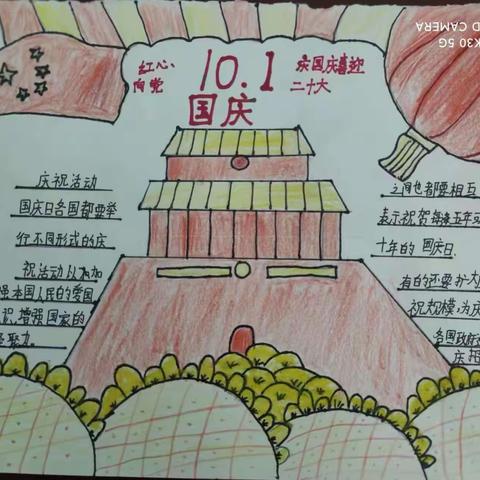 红心
向党
10.1
国庆
庆国庆喜迎
二十大
庆祝活动
国庆日各国都要举
行不同形式的庆
祝活动以加
强本国人民的爱国
识,增强国家的
聚力。
之间也都要相互
表示祝贺每逢五年或
十年的国庆日.
有的还要扩大
祝规模,为庆
各国政府
庆招
K30 5G
D CAMERA